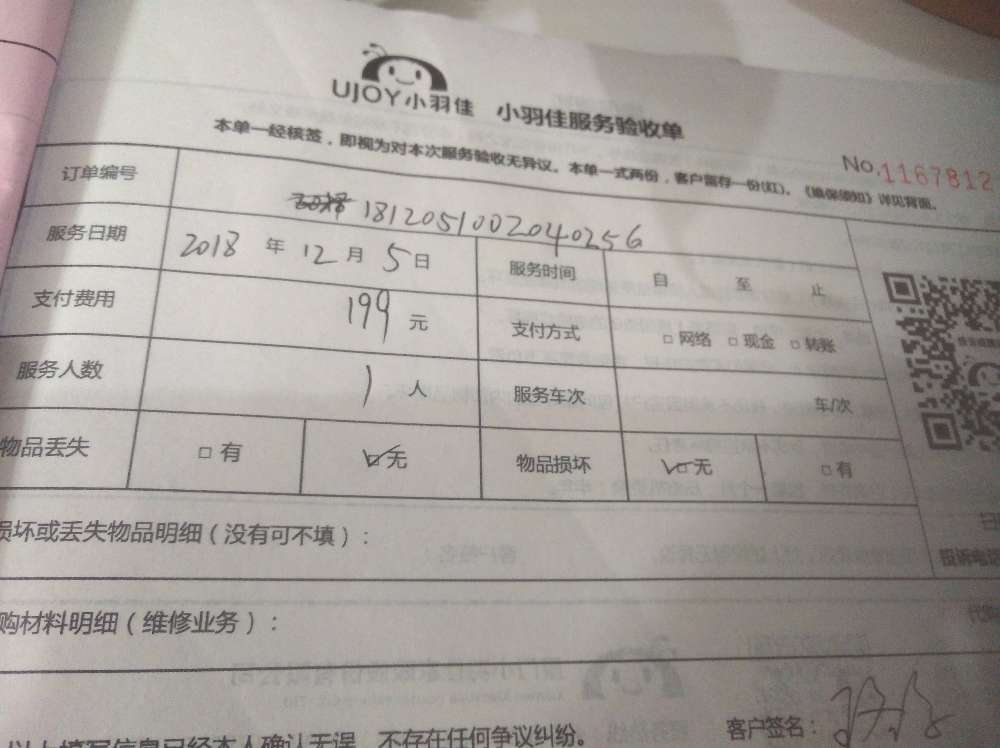 UJOY小羽佳 小羽佳服务验收单
本单一经核签，即视为对本次服务验收无异议。本单一式两份，客户留存一份(红)。《维保须知》详见背面。
No.1167812
订单编号 181205100204025G
服务日期 2018 年 12 月 5 日 服务时间 自 至 止
支付费用 199 元 支付方式 □ 网络 □ 现金 □ 转账
服务人数 1 人 服务车次 车/次
物品丢失 □ 有 ☑ 无 物品损坏 ☑ 无 □ 有
损坏或丢失物品明细（没有可不填）：
投诉电话
购材料明细（维修业务）：
客户签名：
以上填写信息已经本人确认无误，不存在任何争议纠纷。